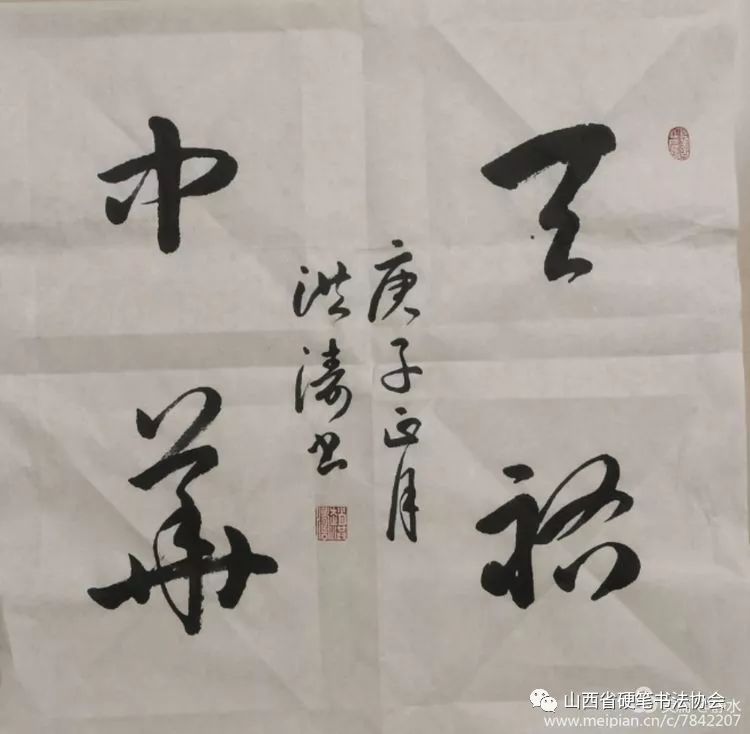 天祐
庚子正月
洪涛书
中華
山西省硬笔书法协会
www.meipian.cn/c/7842207